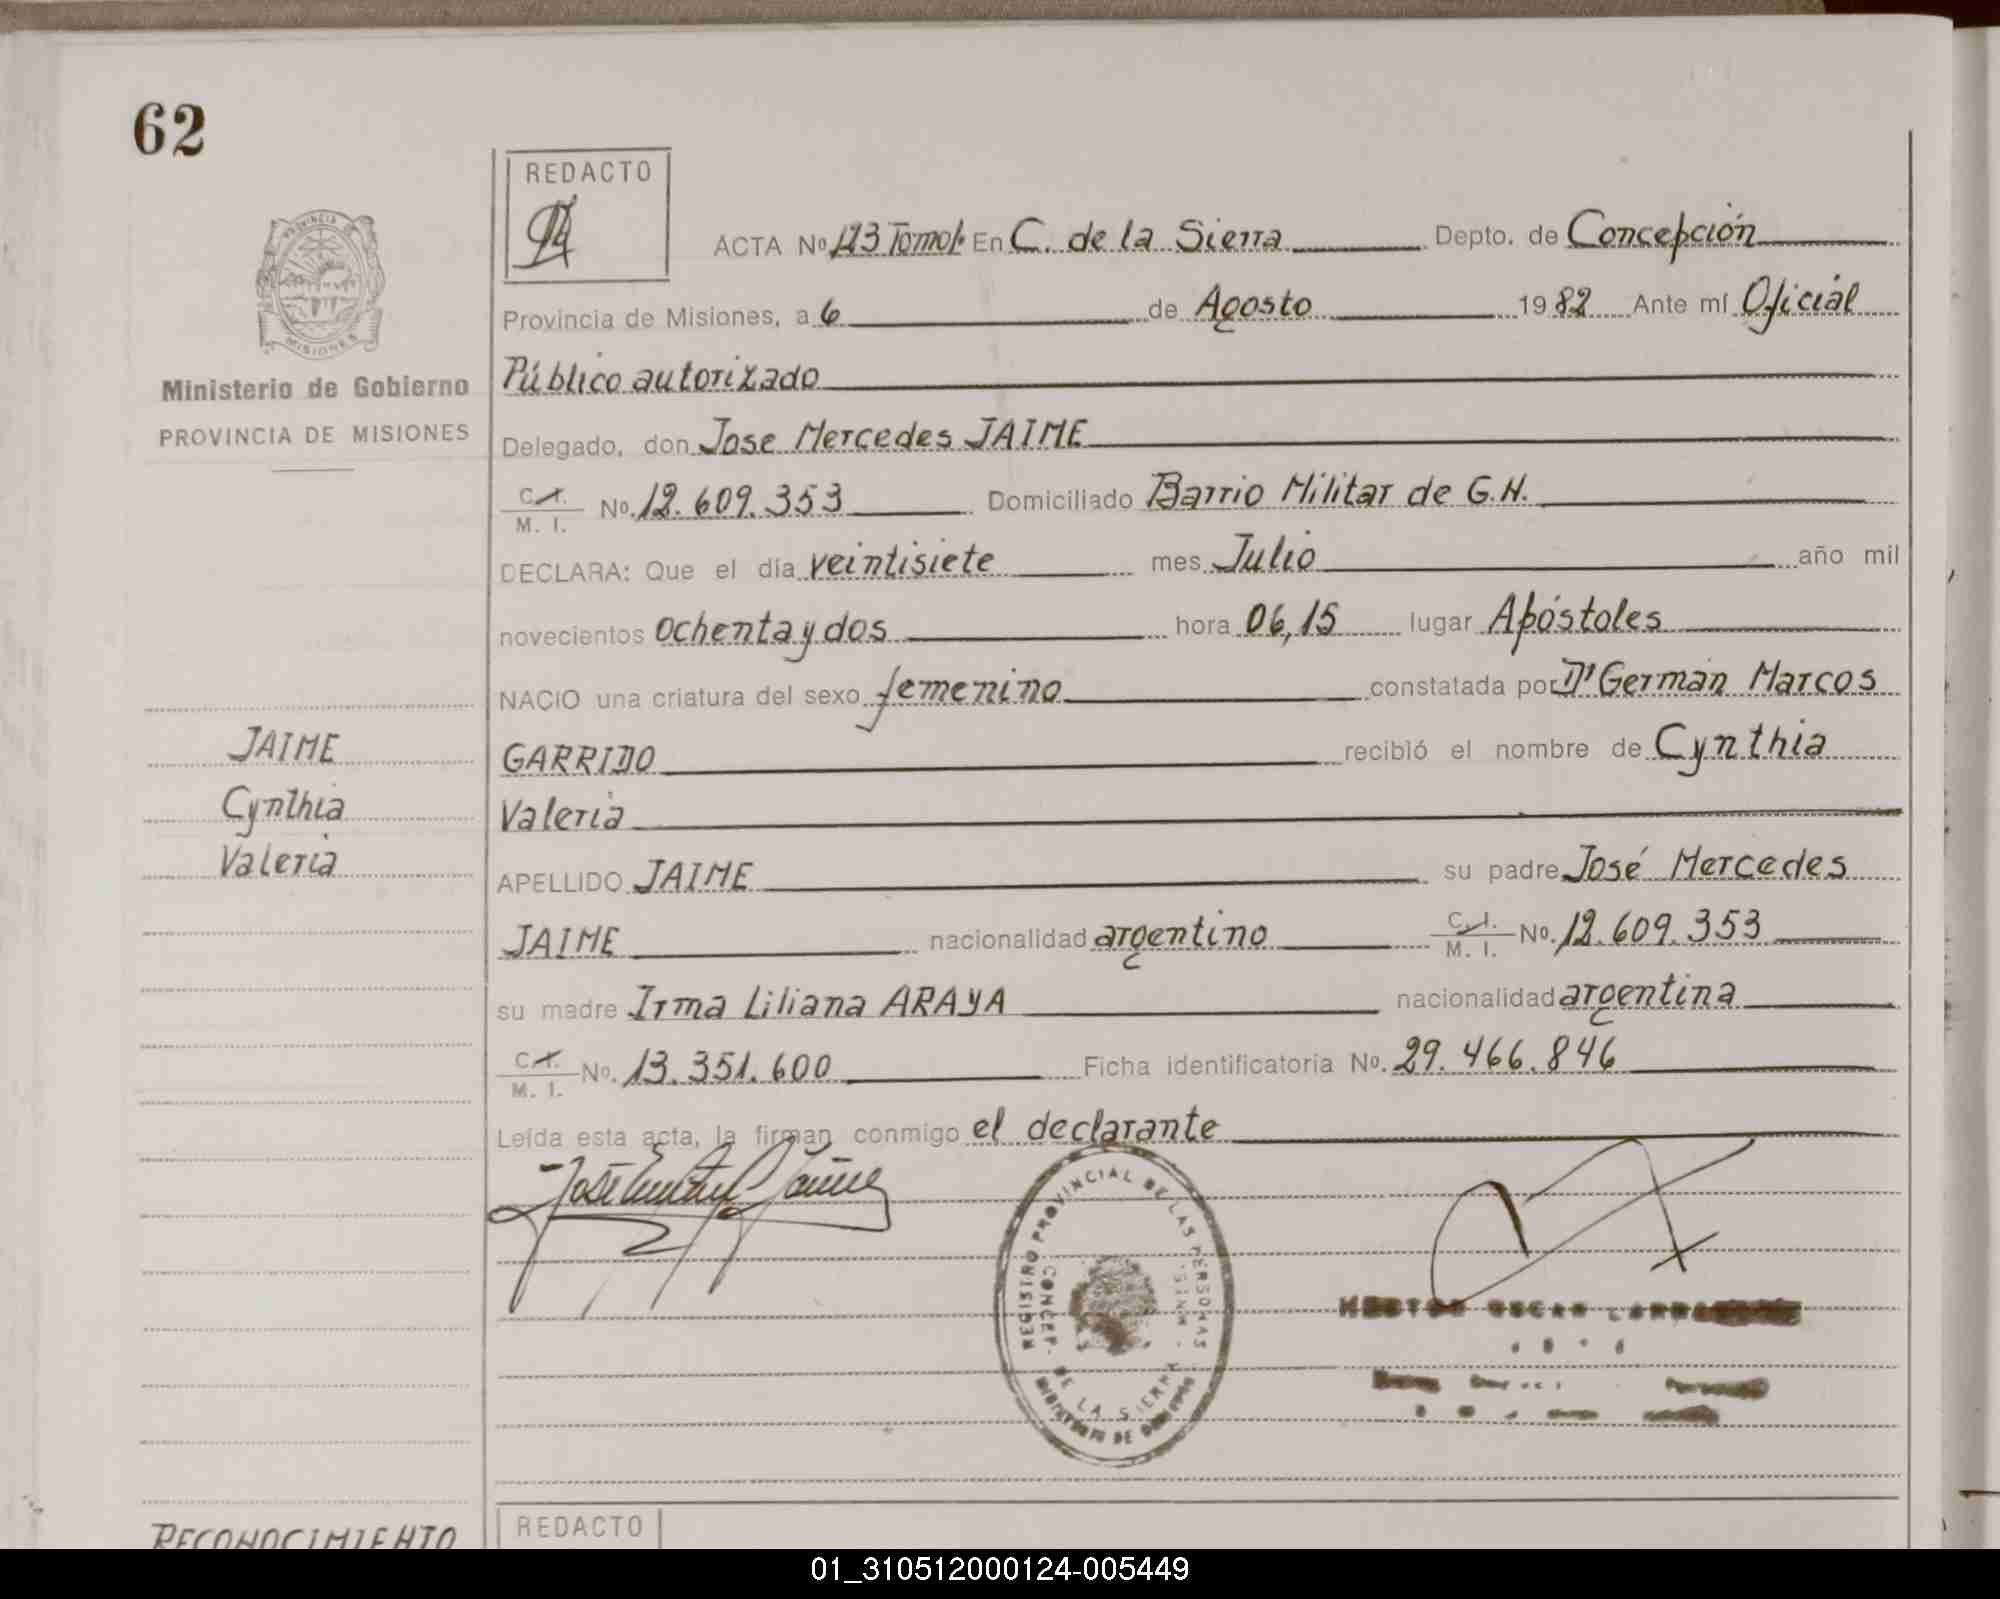 62
REDACTO
ACTA No 123 Tomo I En C. de la Sierra Depto. de Concepción
PROVINCIA
MISIONES
Provincia de Misiones, a 6 de Agosto 1982 Ante mí Oficial
Ministerio de Gobierno
PROVINCIA DE MISIONES
Público autorizado
Delegado, don Jose Mercedes JAIME
C.I. / M. I. No. 12.609.353 Domiciliado Barrio Militar de G.N.
DECLARA: Que el día veintisiete mes Julio año mil
novecientos ochenta y dos hora 06,15 lugar Apóstoles
NACIO una criatura del sexo femenino constatada por Dr German Marcos
JAIME
GARRIDO recibió el nombre de Cynthia
Cynthia
Valeria
Valeria
APELLIDO JAIME su padre José Mercedes
JAIME nacionalidad argentino C.I. / M. I. No. 12.609.353
su madre Irma Liliana ARAYA nacionalidad argentina
C.I. / M. I. No. 13.351.600 Ficha identificatoria No. 29.466.846
Leída esta acta, la firman conmigo el declarante
REGISTRO PROVINCIAL DE LAS PERSONAS
CONCEP. DE LA SIERRA
RECONOCIMIENTO
REDACTO
01_310512000124-005449